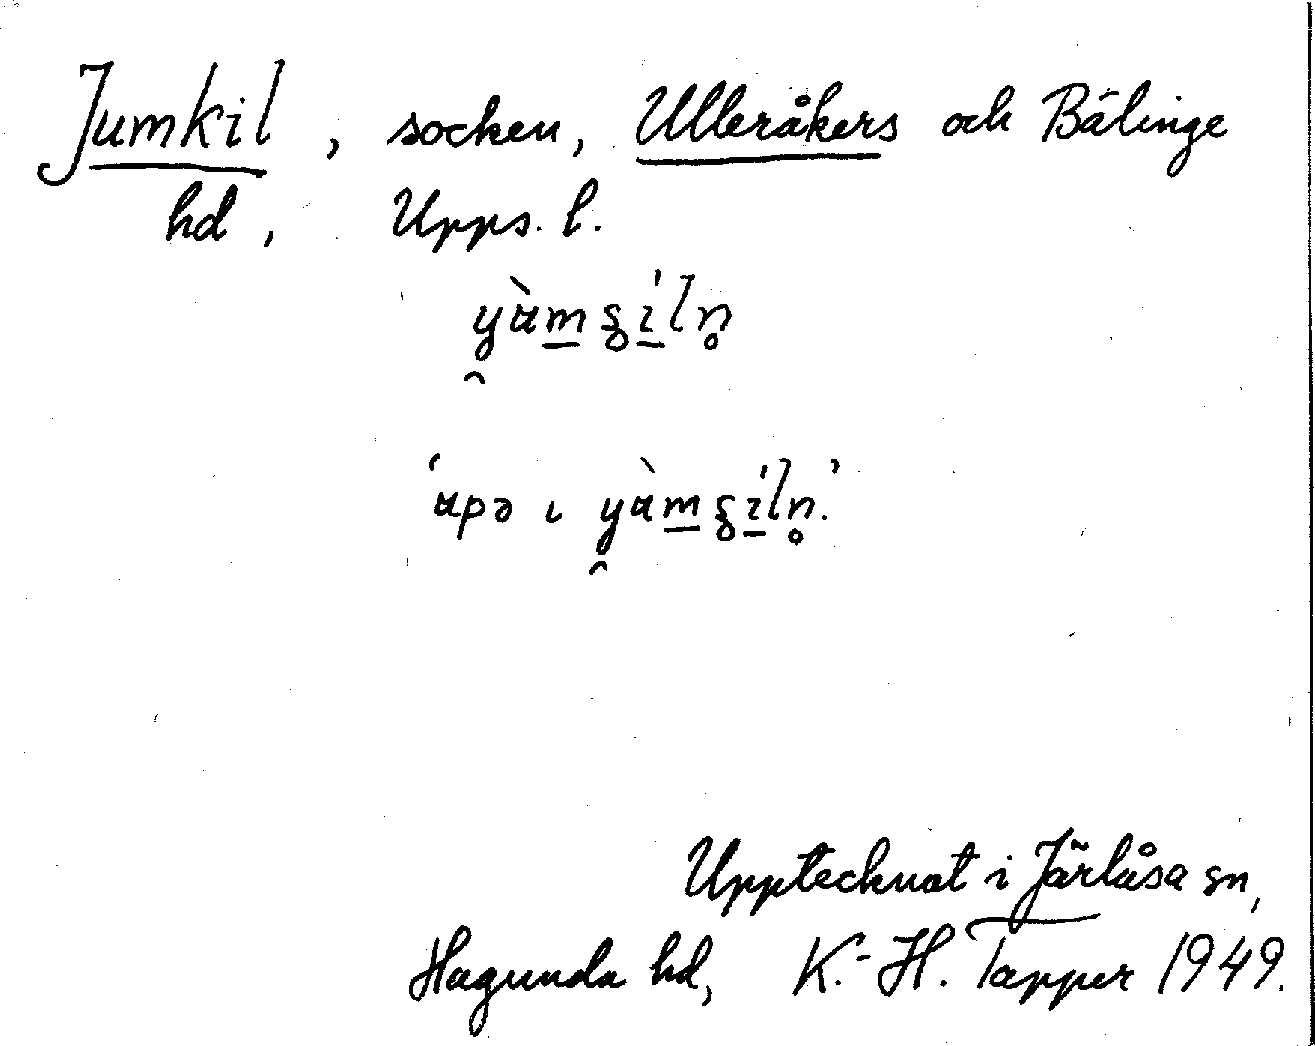 Jumkil, socken, Ulleråkers och Bälinge
hd, Upps. l.
i
Upptecknat i Järlåsa sn,
Hagunda hd, K.-H. Tapper 1949.